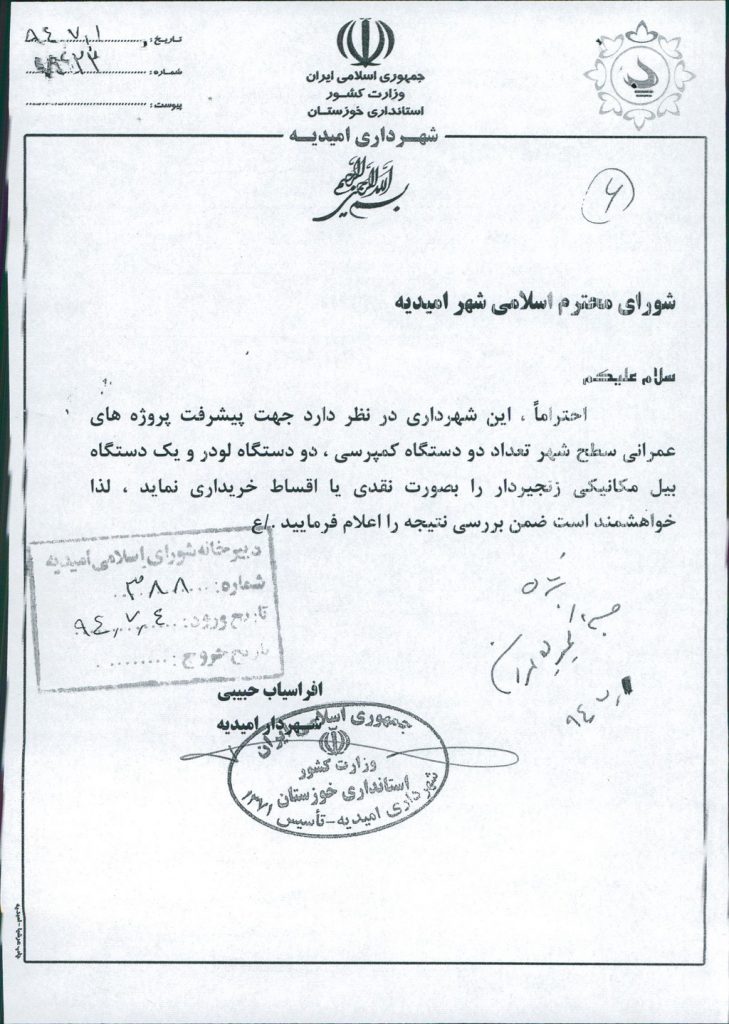 جمهوری اسلامی ایران
وزارت کشور
استانداری خوزستان
شهرداری امیدیه
تاریخ: ۹۴،۷،۱
شماره:
پیوست:
بسم الله الرحمن الرحیم
۶
شورای محترم اسلامی شهر امیدیه
سلام علیکم
احتراماً ، این شهرداری در نظر دارد جهت پیشرفت پروژه های
عمرانی سطح شهر تعداد دو دستگاه کمپرسی ، دو دستگاه لودر و یک دستگاه
بیل مکانیکی زنجیردار را بصورت نقدی یا اقساط خریداری نماید ، لذا
خواهشمند است ضمن بررسی نتیجه را اعلام فرمایید ./ع
دبیرخانه شورای اسلامی امیدیه
شماره: ۳۸۸
تاریخ ورود: ۹۴،۷،۴
تاریخ خروج:
افراسیاب حبیبی
شهردار امیدیه
جمهوری اسلامی ایران
وزارت کشور
استانداری خوزستان
شهرداری امیدیه-تأسیس ۱۳۷۱